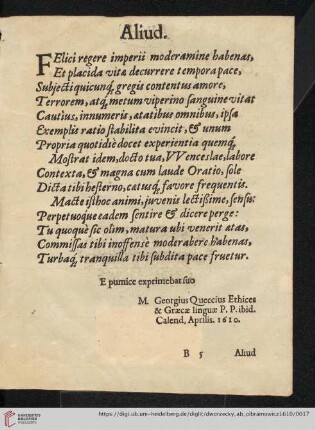 Aliud.
FElici regere imperii moderamine habenas,
Et placida vitæ decurrere tempora pace,
Subjecti quicunq; gregis contentus amore,
Terrorem, atq; metum viperino sanguine vitat
Cautius, innumeris, ætatibus omnibus, ipsa
Exemplis ratio stabilita evincit, & unum
Propria quotidiè docet experientia quemq;
Mostrat idem, docto tua, VVenceslae, labore
Contexta, & magna cum laude Oratio, sole
Dicta tibi hesterno, cætusq; favore frequentis.
Macte isthoc animi, juvenis lectißime, sensu:
Perpetuoque eadem sentire & dicere perge:
Tu quoque sic olim, matura ubi venerit ætas,
Commissas tibi inoffensè moderabere habenas,
Turbaq; tranquilla tibi subdita pace fruetur.
E pumice exprimebat suo
M. Georgius Queccius Ethices
& Græcæ linguæ P. P. ibid.
Calend, Aprilis. 1610.
B 5 Aliud
https://digi.ub.uni-heidelberg.de/diglit/dworzecky_ab_cibramowicz1610/0017